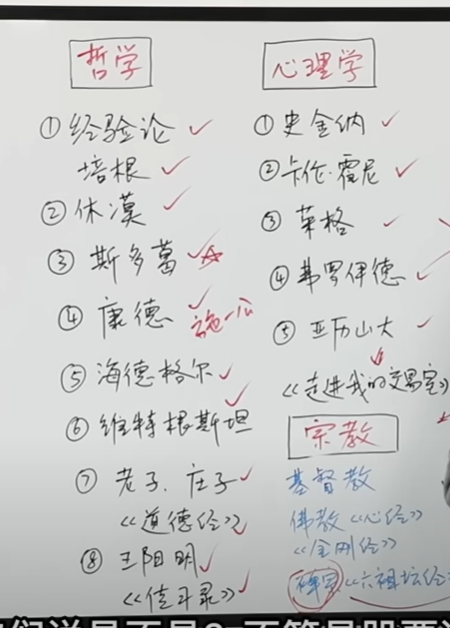 哲学
①经验论
培根
②休漠
③斯多葛
④康德
⑤海德格尔
⑥维特根斯坦
⑦老子、庄子
《道德经》
⑧王阳明
《传习录》
心理学
①史金纳
②卡伦·霍尼
③荣格
④弗罗伊德
⑤亚历山大
《走进我的交易室》
宗教
基督教
佛教《心经》
《金刚经》
禅宗《六祖坛经